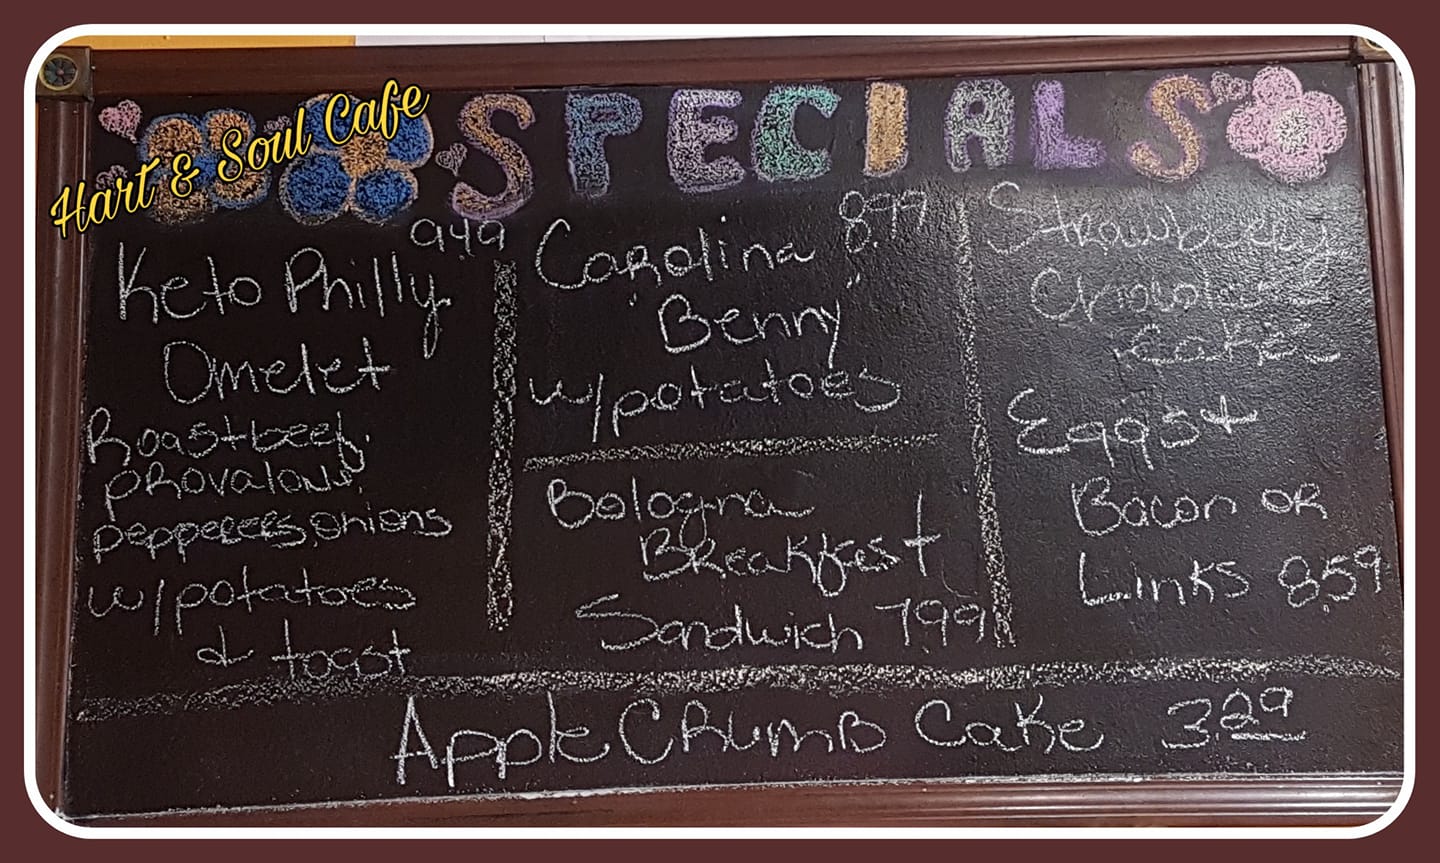 Hart & Soul Cafe
SPECIALS
9.49
Keto Philly
Omelet
Roastbeef,
provalone,
pepperers, onions
w/potatoes
& toast
Carolina 8.99
"Benny"
w/potatoes
Bologna
Breakfast
Sandwich 7.99
Strawberry
Chocolate
Cakes
Eggs +
Bacon or
Links 8.59
Apple Crumb Cake 3.29